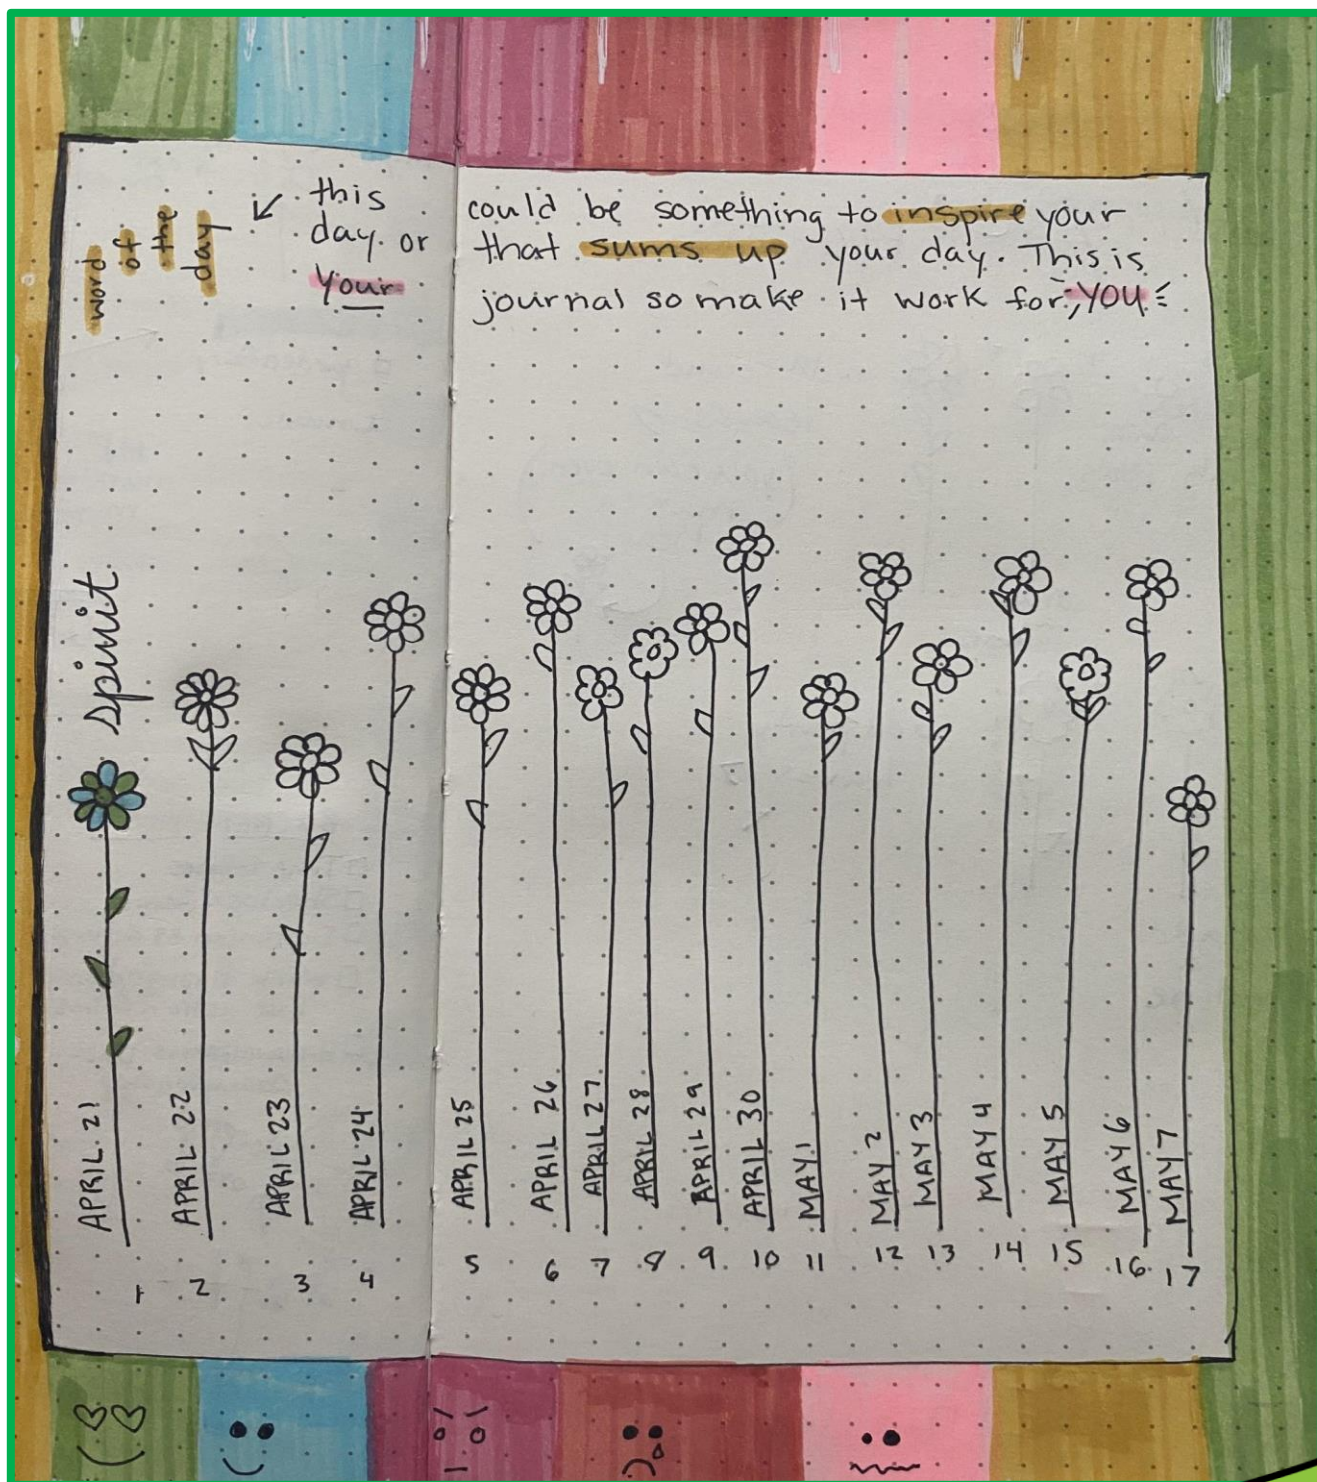 word of the day
this could be something to inspire your
day or that sums up your day. This is
your journal so make it work for YOU
spirit
APRIL 21
APRIL 22
APRIL 23
APRIL 24
APRIL 25
APRIL 26
APRIL 27
APRIL 28
APRIL 29
APRIL 30
MAY 1
MAY 2
MAY 3
MAY 4
MAY 5
MAY 6
MAY 7
1 2 3 4 5 6 7 8 9 10 11 12 13 14 15 16 17